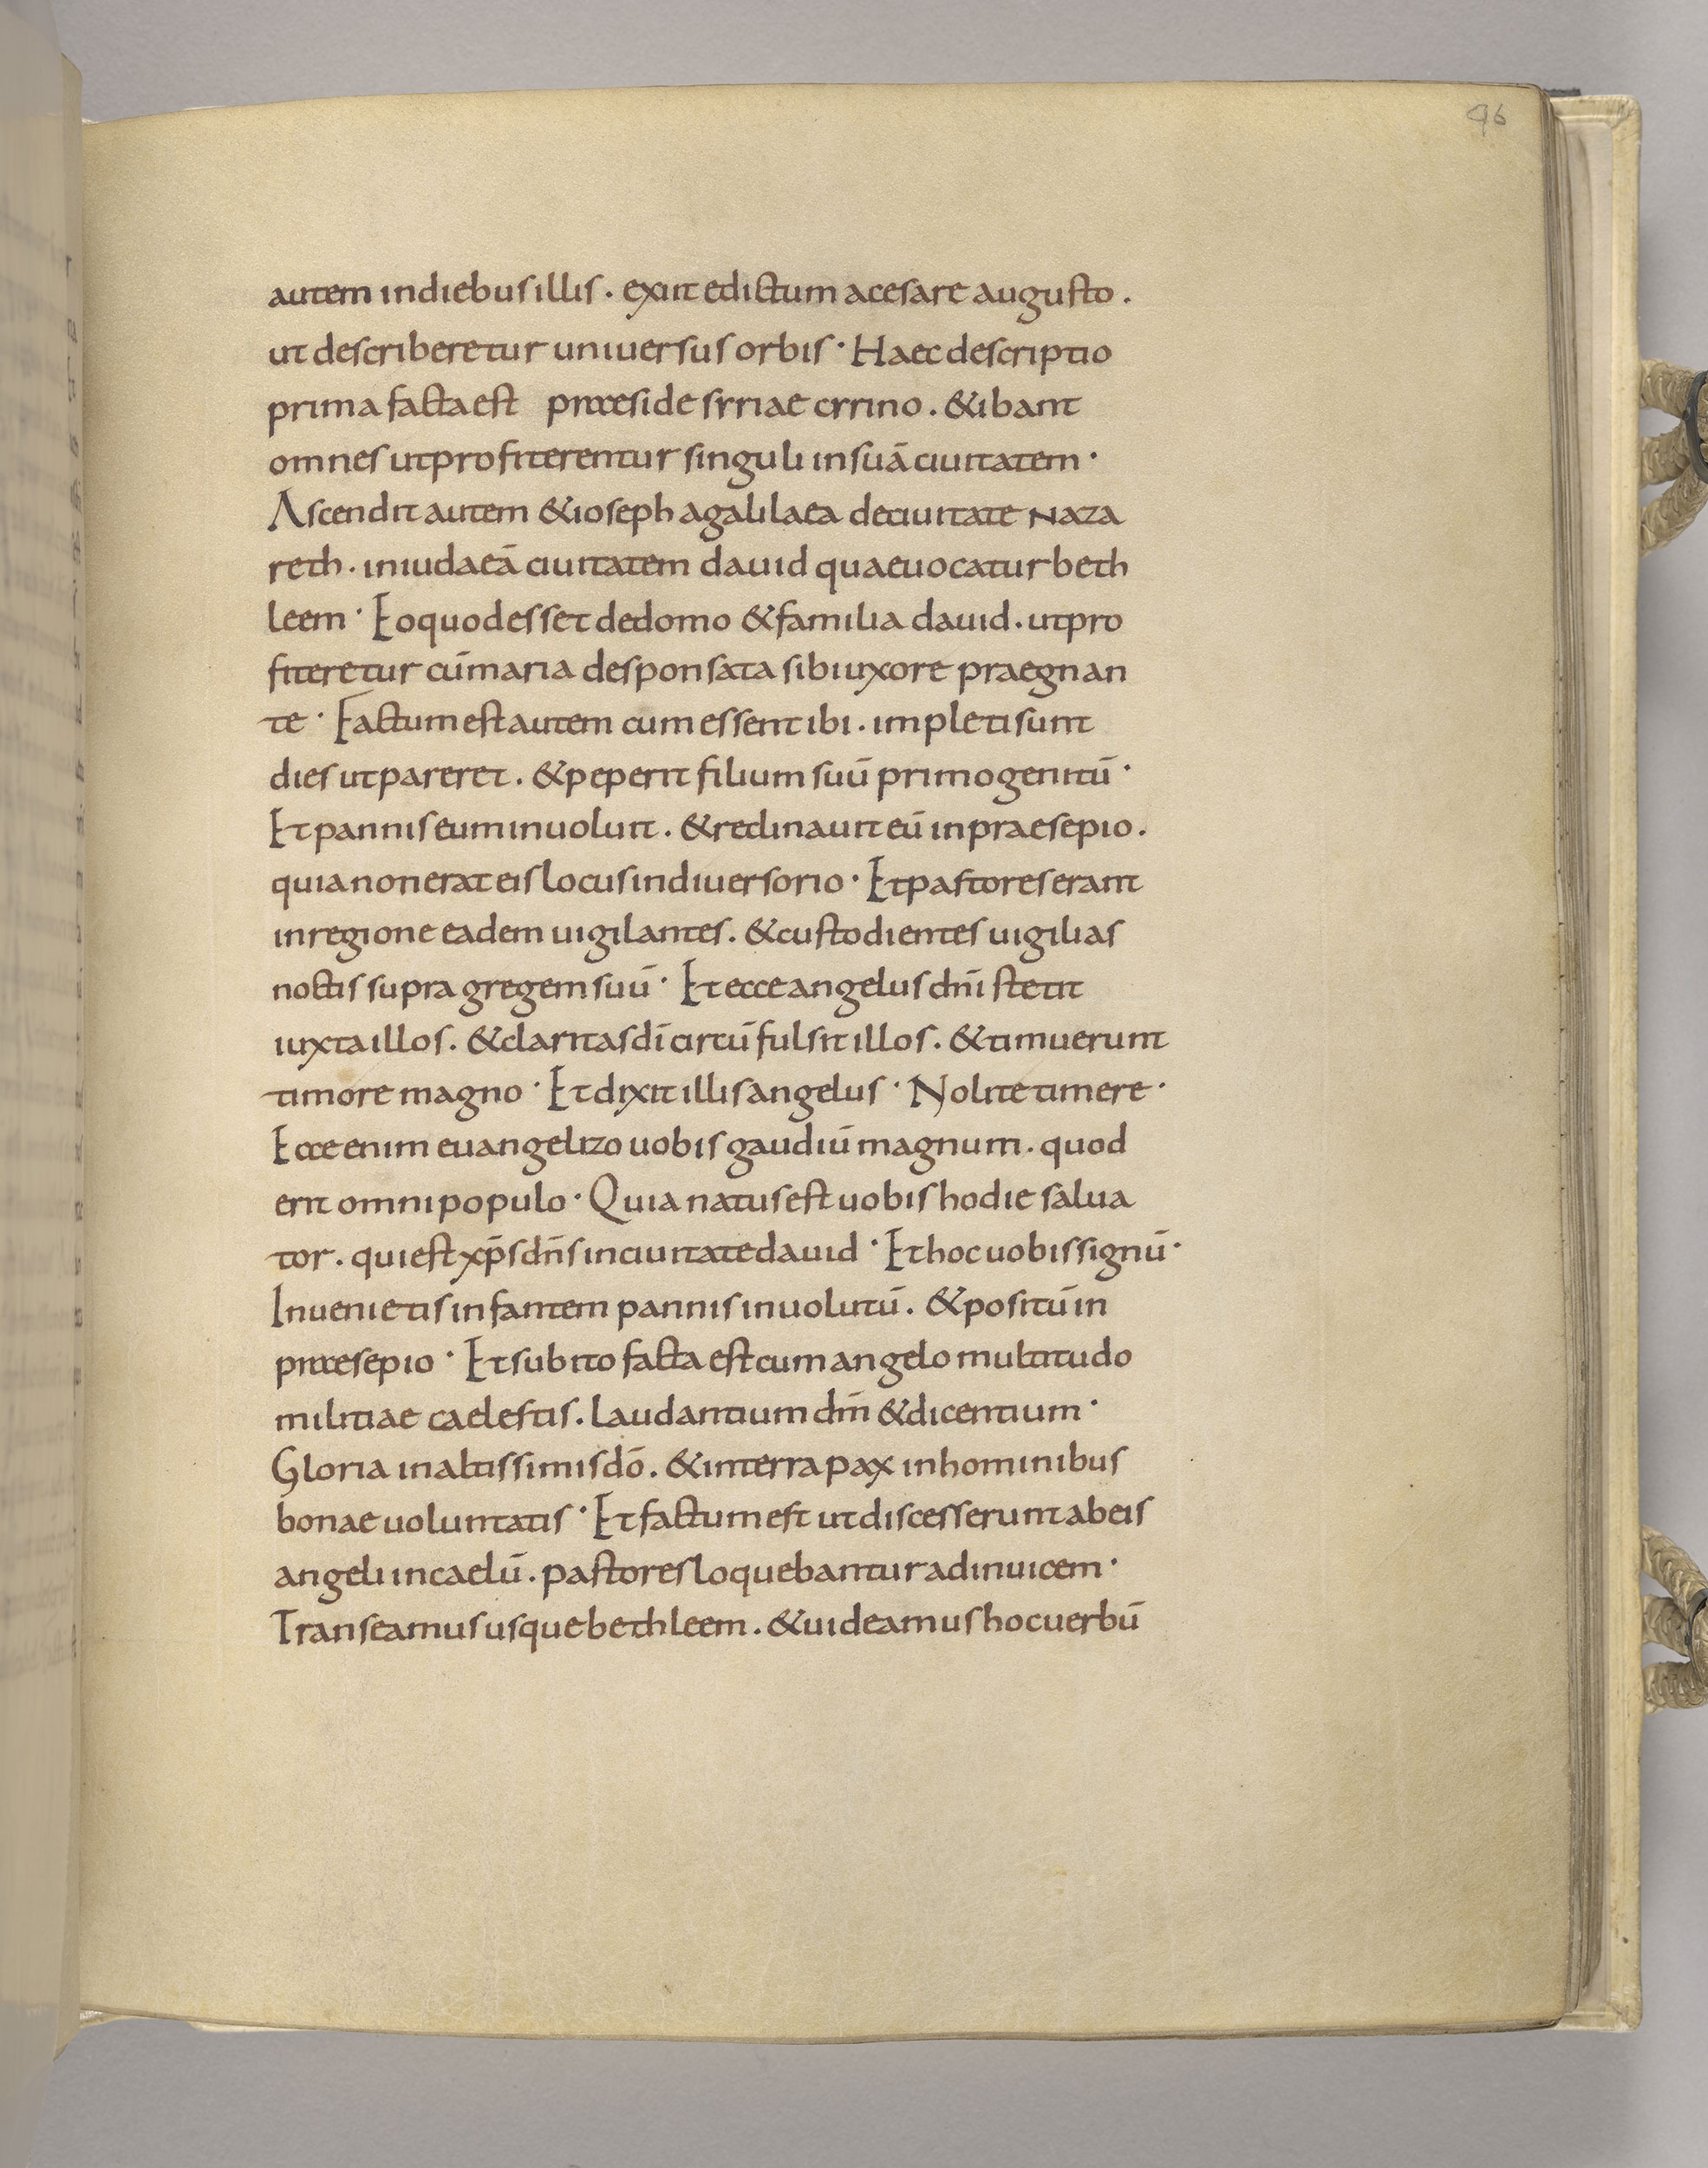 96
autem indiebus illis · exiit edictum acesare augusto .
ut describeretur universus orbis · Haec descriptio
prima facta est praeside syriae cyrino . & ibant
omnes utprofiterentur singuli insuā ciuitatem ·
Ascendit autem & ioseph agalilaea deciuitate Naza
reth . iniudaeā ciuitatem dauid quaeuocatur beth
leem · Eoquodesset dedomo & familia dauid . utpro
fiteretur cūmaria desponsata sibiuxore praegnan
te · Factumest autem cumessent ibi . impletisunt
dies utpareret . & peperit filium suū primogenitū ·
Et pannis eum inuoluit . & reclinauit eū inpraesepio .
quia nonerat eis locus indiuersorio · Et pastores erant
inregione eadem uigilantes . & custodientes uigilias
noctis supra gregem suū · Et ecce angelus dn̄i stetit
iuxta illos . & claritas dī circū fulsit illos . & timuerunt
timore magno · Et dixit illis angelus · Nolite timere ·
Ecce enim euangelizo uobis gaudiū magnum . quod
erit omni populo · Quia natus est uobis hodie salua
tor . qui est xp̄s dn̄s inciuitate dauid · Et hoc uobis signū ·
Inuenietis infantem pannis inuolutū . & positū in
praesepio · Et subito facta est cum angelo multitudo
militiae caelestis . laudantium dm̄ & dicentium ·
Gloria inaltissimis dō . & interra pax inhominibus
bonae uoluntatis · Et factum est ut discesserunt abeis
angeli incaelū . pastores loquebantur adinuicem ·
Transeamus usque bethleem . & uideamus hoc uerbū